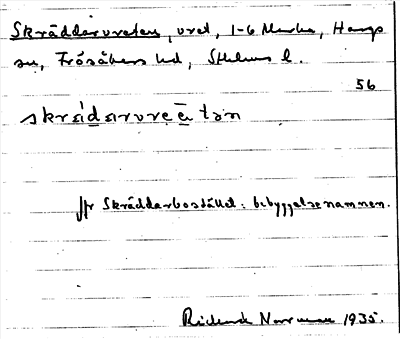 Skräddarvreten, vret, 1-6 Marka, Harg
sn, Frösåkers hd, Sthlms l.
56
skrädarvre͞tən
jfr Skräddarbostället: bebyggelsenamnen.
Norrman 1935.